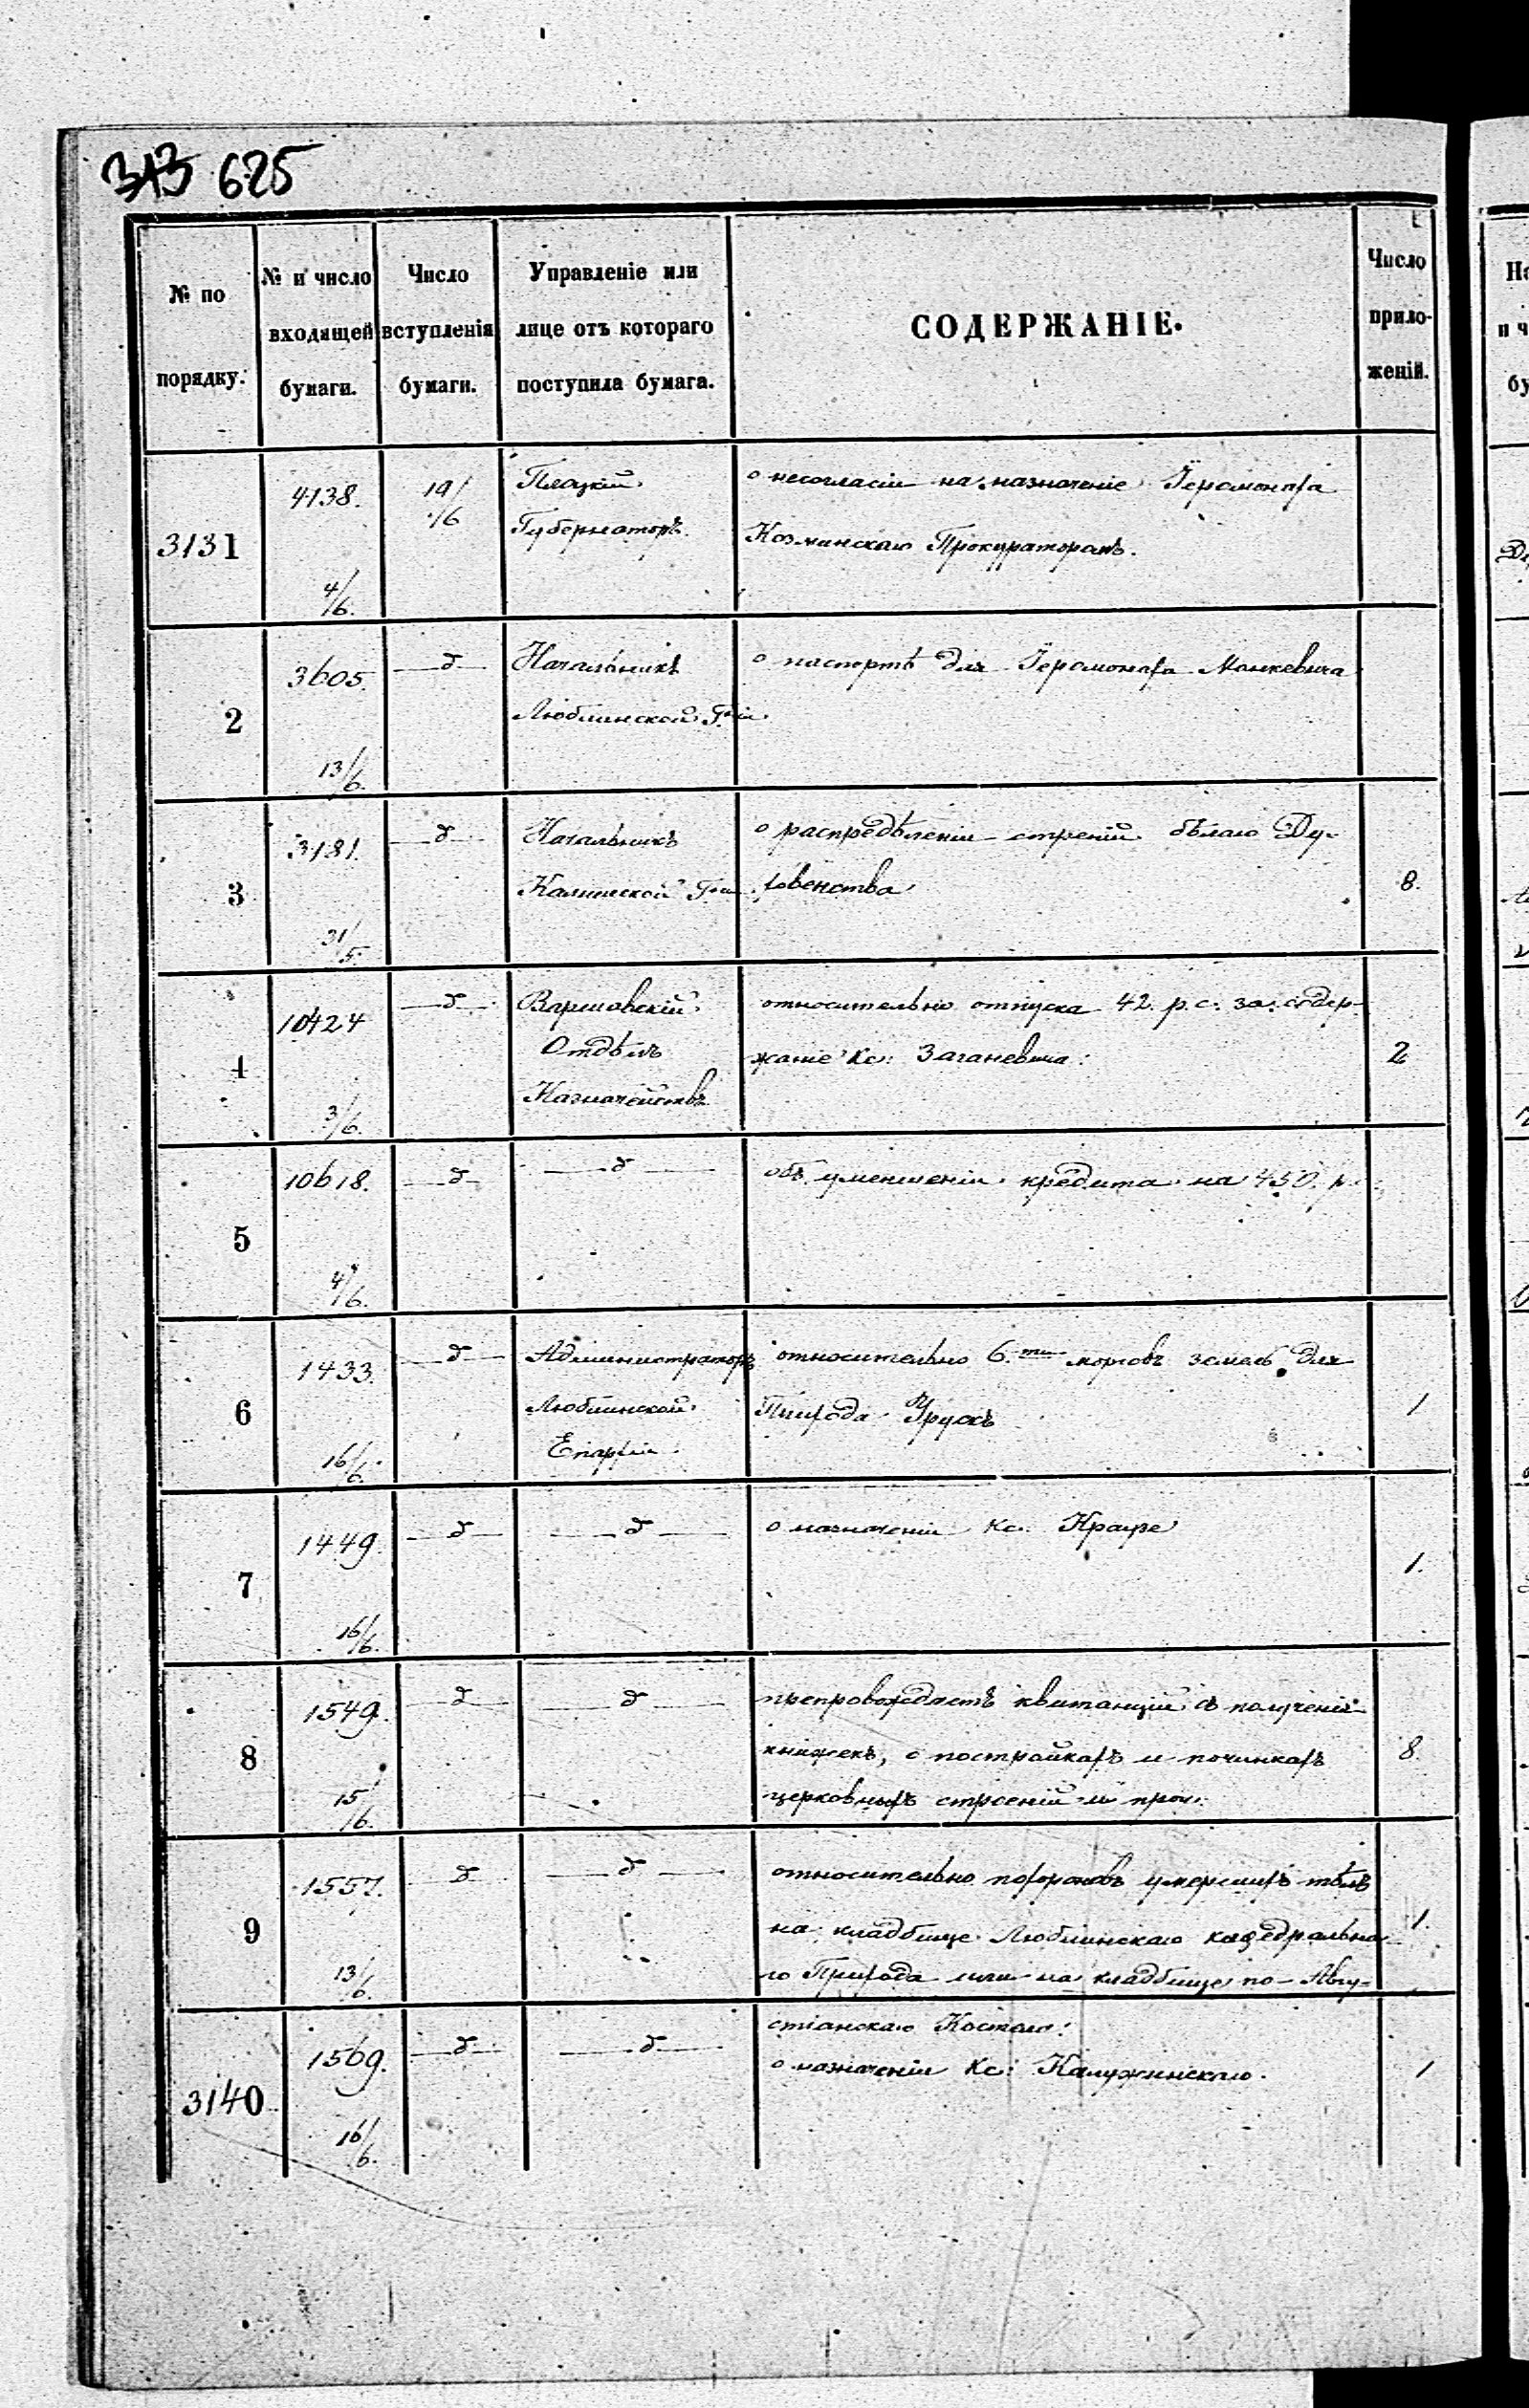 313 625
№ по порядку.
№ и число входящей бумаги.
Число вступленія бумаги.
Управленіе или лице отъ котораго поступила бумага.
СОДЕРЖАНІЕ.
Число приложеній.
3131
4138.
4/6.
19/6
Плоцкій
Губернаторъ.
о несогласіи на назначеніе Іеромонаха
Козминскаго Прокураторомъ.
2
3605.
13/6.
—д—
Начальникъ
Люблинской Г-іи.
о паспортѣ для Іеромонаха Манкевича
3
3181.
31/5.
—д—
Начальникъ
Калишской Г-іи
о распредѣленіи строеній бѣлаго Ду-
ховенства
8.
4
10424
3/6.
—д—
Варшавскій
Отдѣлъ
Казначействъ
относительно отпуска 42. р. с. за содер-
жаніе Кс:
2
5
10618.
4/6.
—д—
—д—
объ уменшеніи кредита на 450. р.
6
1433.
16/6.
—д—
Администраторъ
Люблинской
Епархіи
относительно 6.ти морговъ земли для
Прихода
1
7
1449.
16/6.
—д—
—д—
о назначеніи Кс: Краузе
1.
8
1549.
15/6.
—д—
—д—
препровождаетъ квитанціи о полученіи
книжекъ, о постройкахъ и починкахъ
церковныхъ строеній и проч:
8.
9
1557.
13/6.
—д—
—д—
относительно похороновъ умершихъ тѣлъ
на кладбище Люблинскаго кафедрально-
го Прихода или на кладбище по-Авгу-
стіанскаго Костела:
1.
3140
1569.
16/6.
—д—
—д—
о назначеніи Кс: Калужинскаго.
1